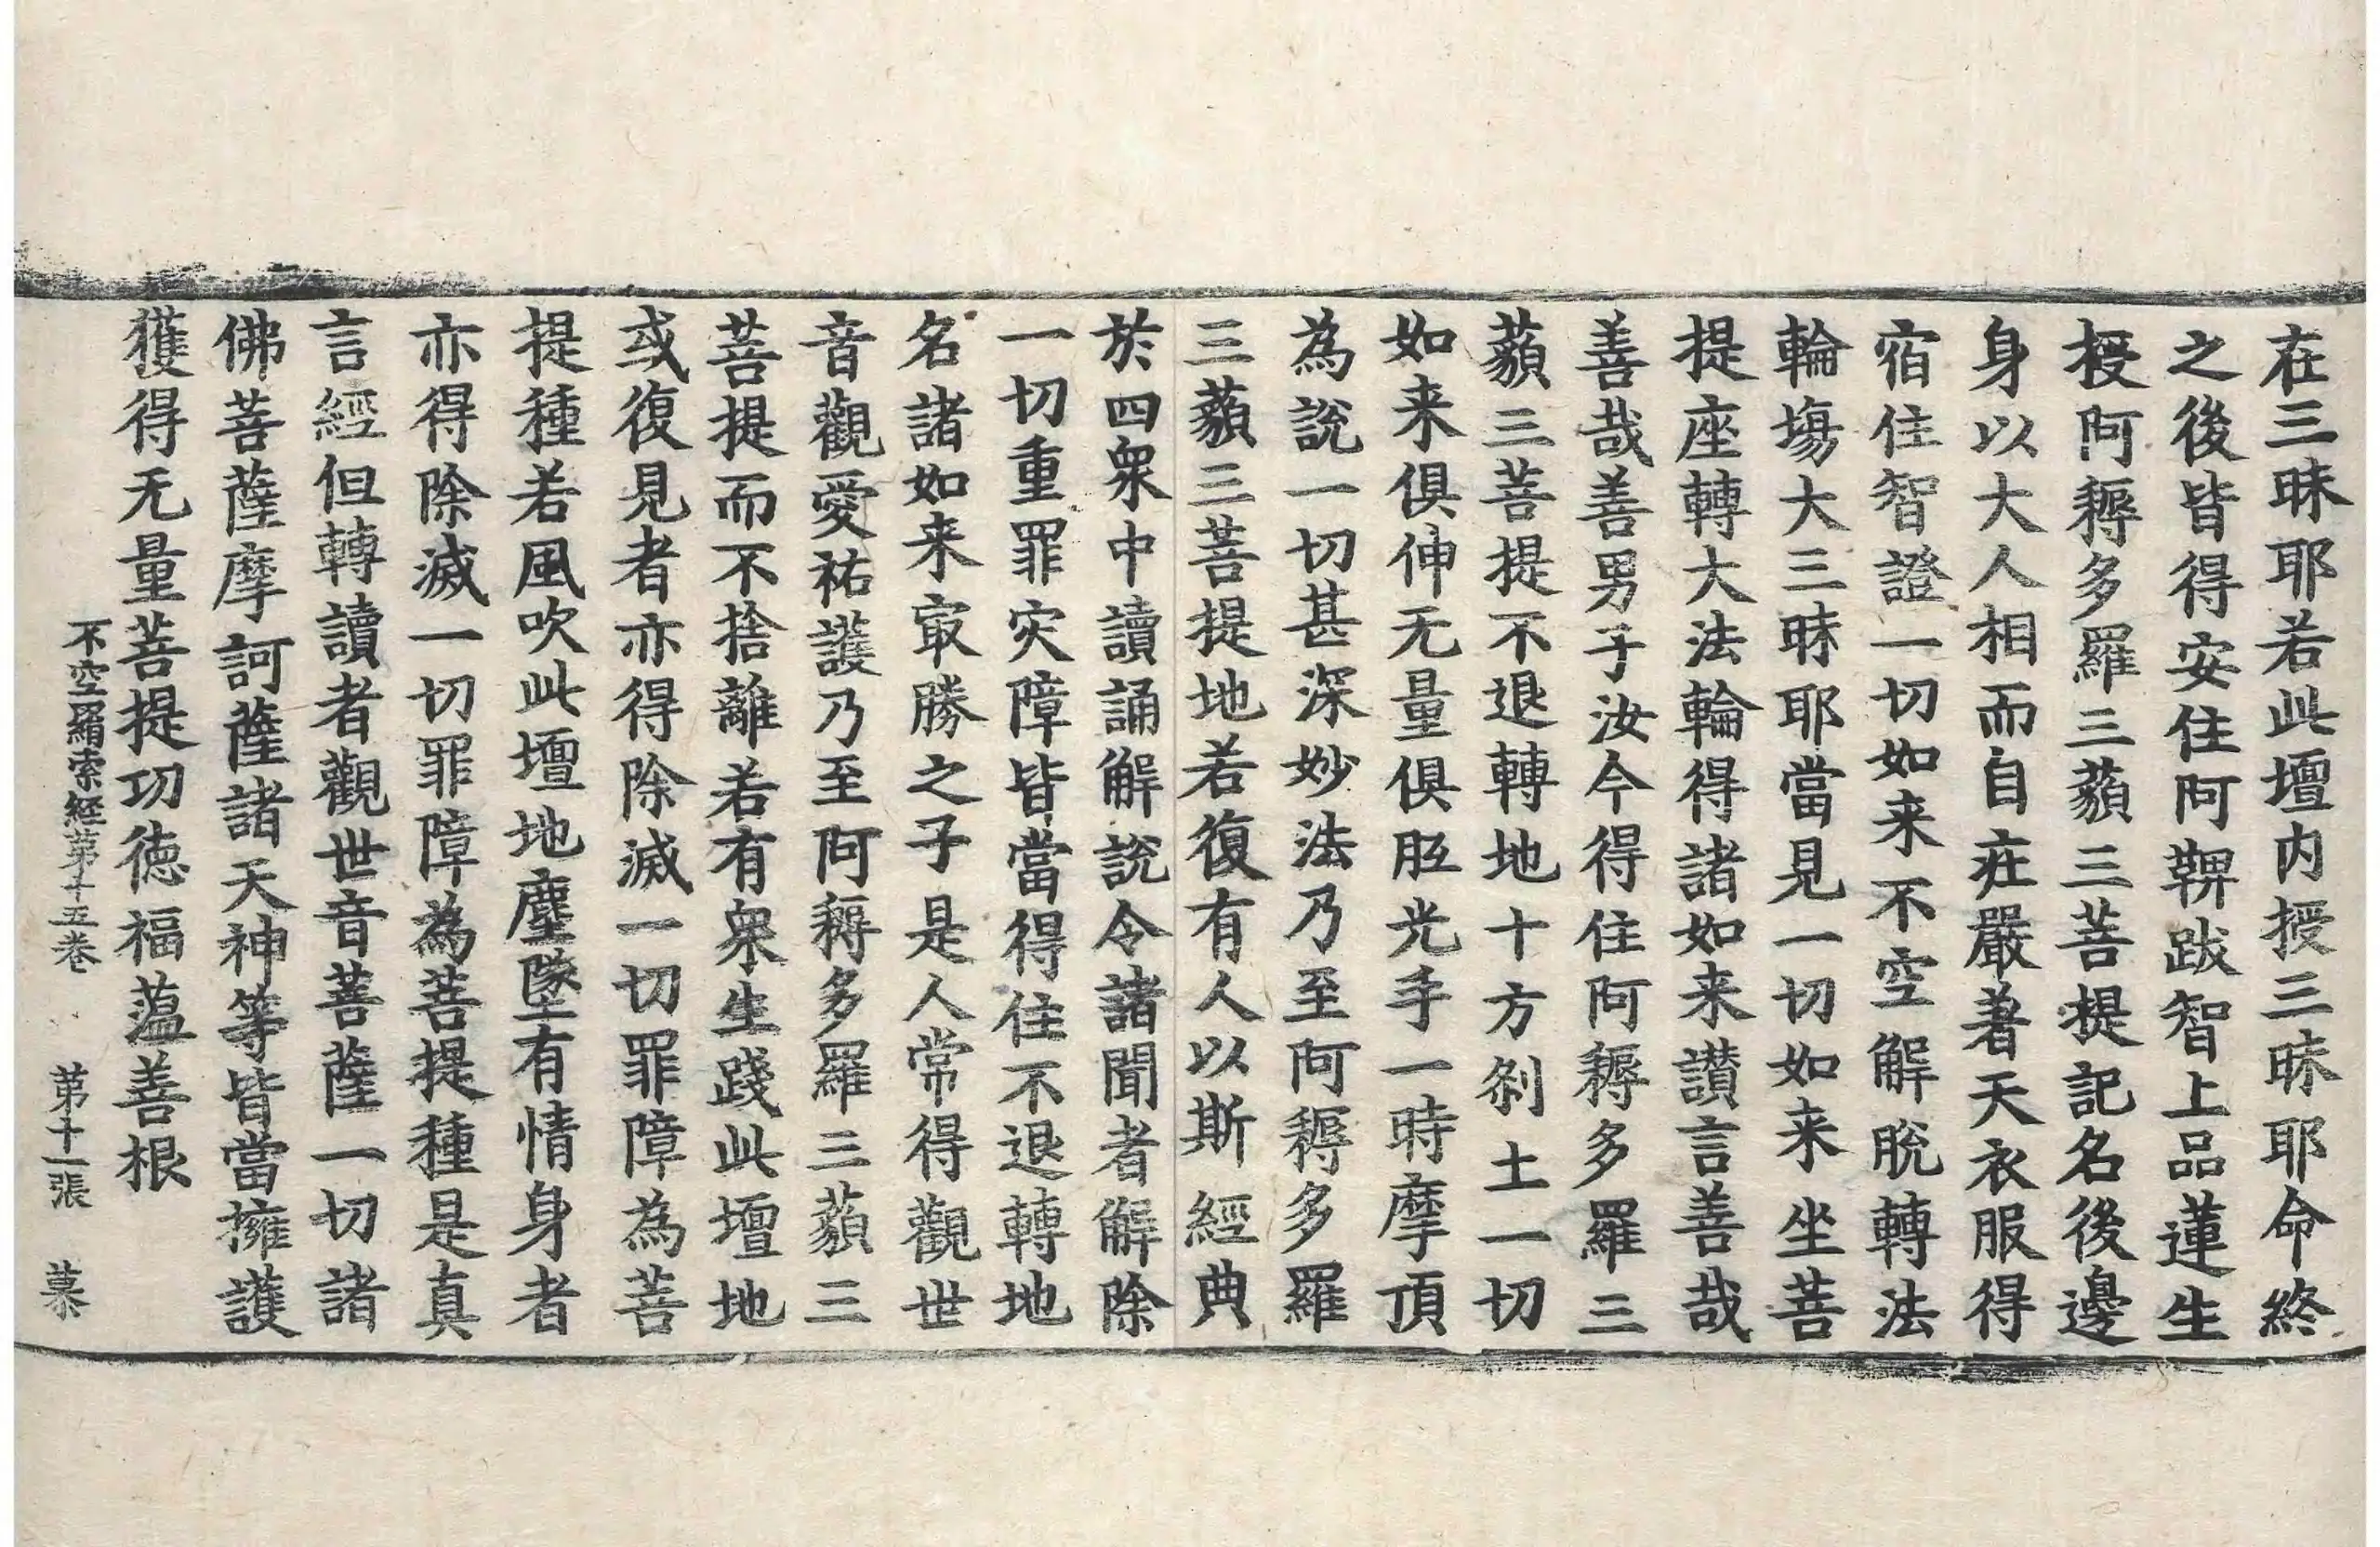 在三昧耶若此壇内授三昧耶命終
之後皆得安住阿鞞跋智上品蓮生
授阿耨多羅三藐三菩提記名後邊
身以大人相而自莊嚴著天衣服得
宿住智證一切如来不空解脫轉法
輪塲大三昧耶當見一切如来坐菩
提座轉大法輪得諸如来讃言善哉
善哉善男子汝今得住阿耨多羅三
藐三菩提不退轉地十方刹土一切
如来俱伸无量俱胝光手一時摩頂
為說一切甚深妙法乃至阿耨多羅
三藐三菩提地若復有人以斯經典
於四衆中讀誦解說令諸聞者解除
一切重罪灾障皆當得住不退轉地
名諸如来㝡勝之子是人常得觀世
音觀愛祐護乃至阿耨多羅三藐三
菩提而不捨離若有衆生踐此壇地
或復見者亦得除滅一切罪障為菩
提種若風吹此壇地塵墜有情身者
亦得除滅一切罪障為菩提種是真
言經但轉讀者觀世音菩薩一切諸
佛菩薩摩訶薩諸天神等皆當擁護
獲得无量菩提功徳福蕰善根
不空羂索経第十五卷 第十一張 慕